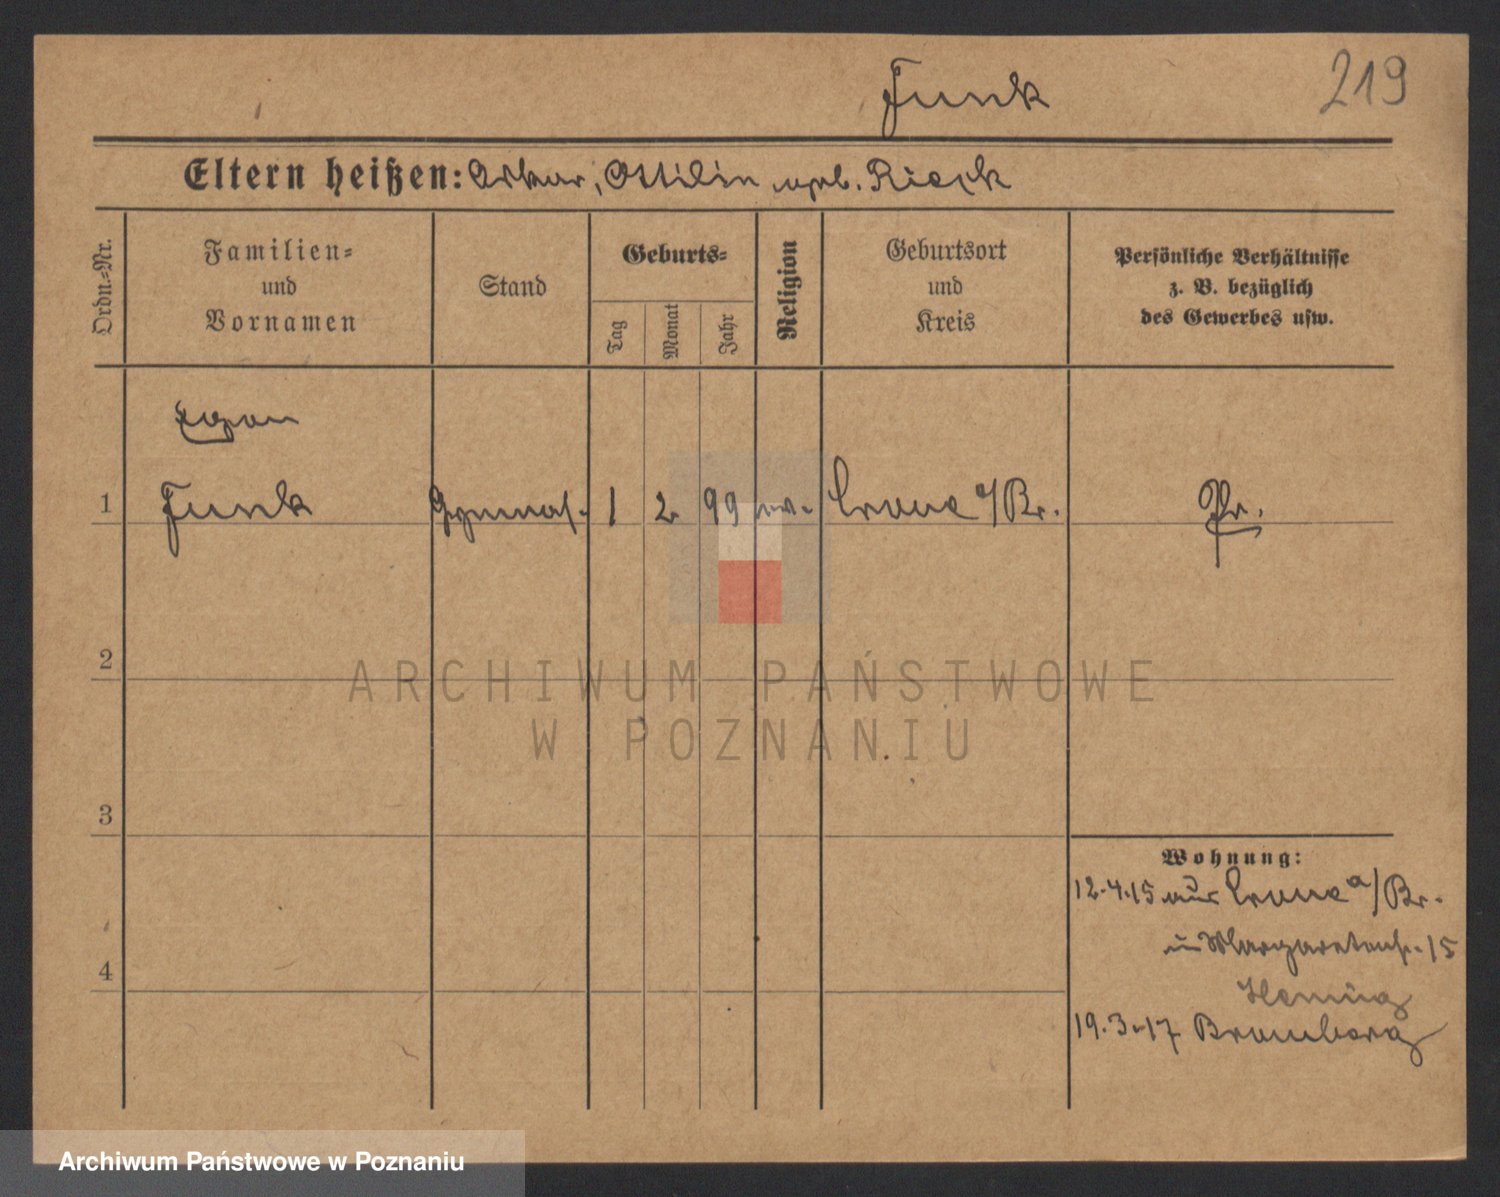 Funk
219
Eltern heißen: Oskar, Ottilie geb. Rieck
Ordn.-Nr.
Familien-
und
Vornamen
Stand
Geburts-
Tag
Monat
Jahr
Religion
Geburtsort
und
Kreis
Persönliche Verhältnisse
z. B. bezüglich
des Gewerbes usw.
Egon
1 Funk Gymnas. 1 2 99 ev. Crone a/Br. Pr.
2
3
4
Wohnung:
12.4.15 aus Crone a/Br.
Margaretenstr. 15
19.3.17 Bromberg
ARCHIWUM PAŃSTWOWE
W POZNANIU
Archiwum Państwowe w Poznaniu